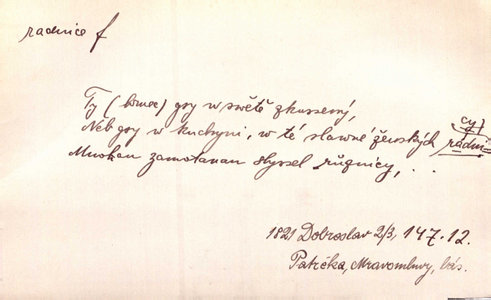 radnice f
Ty (kmoc) gsy w swětě zkussený,
Neb gsy w kuchyni, w té slawné ženských radni-
cy,
Mnohau zamotanau slyssel různicy, . .
1821 Dobroslav 2/3, 147.12.
Patrčka, Mravomluvy, bás.